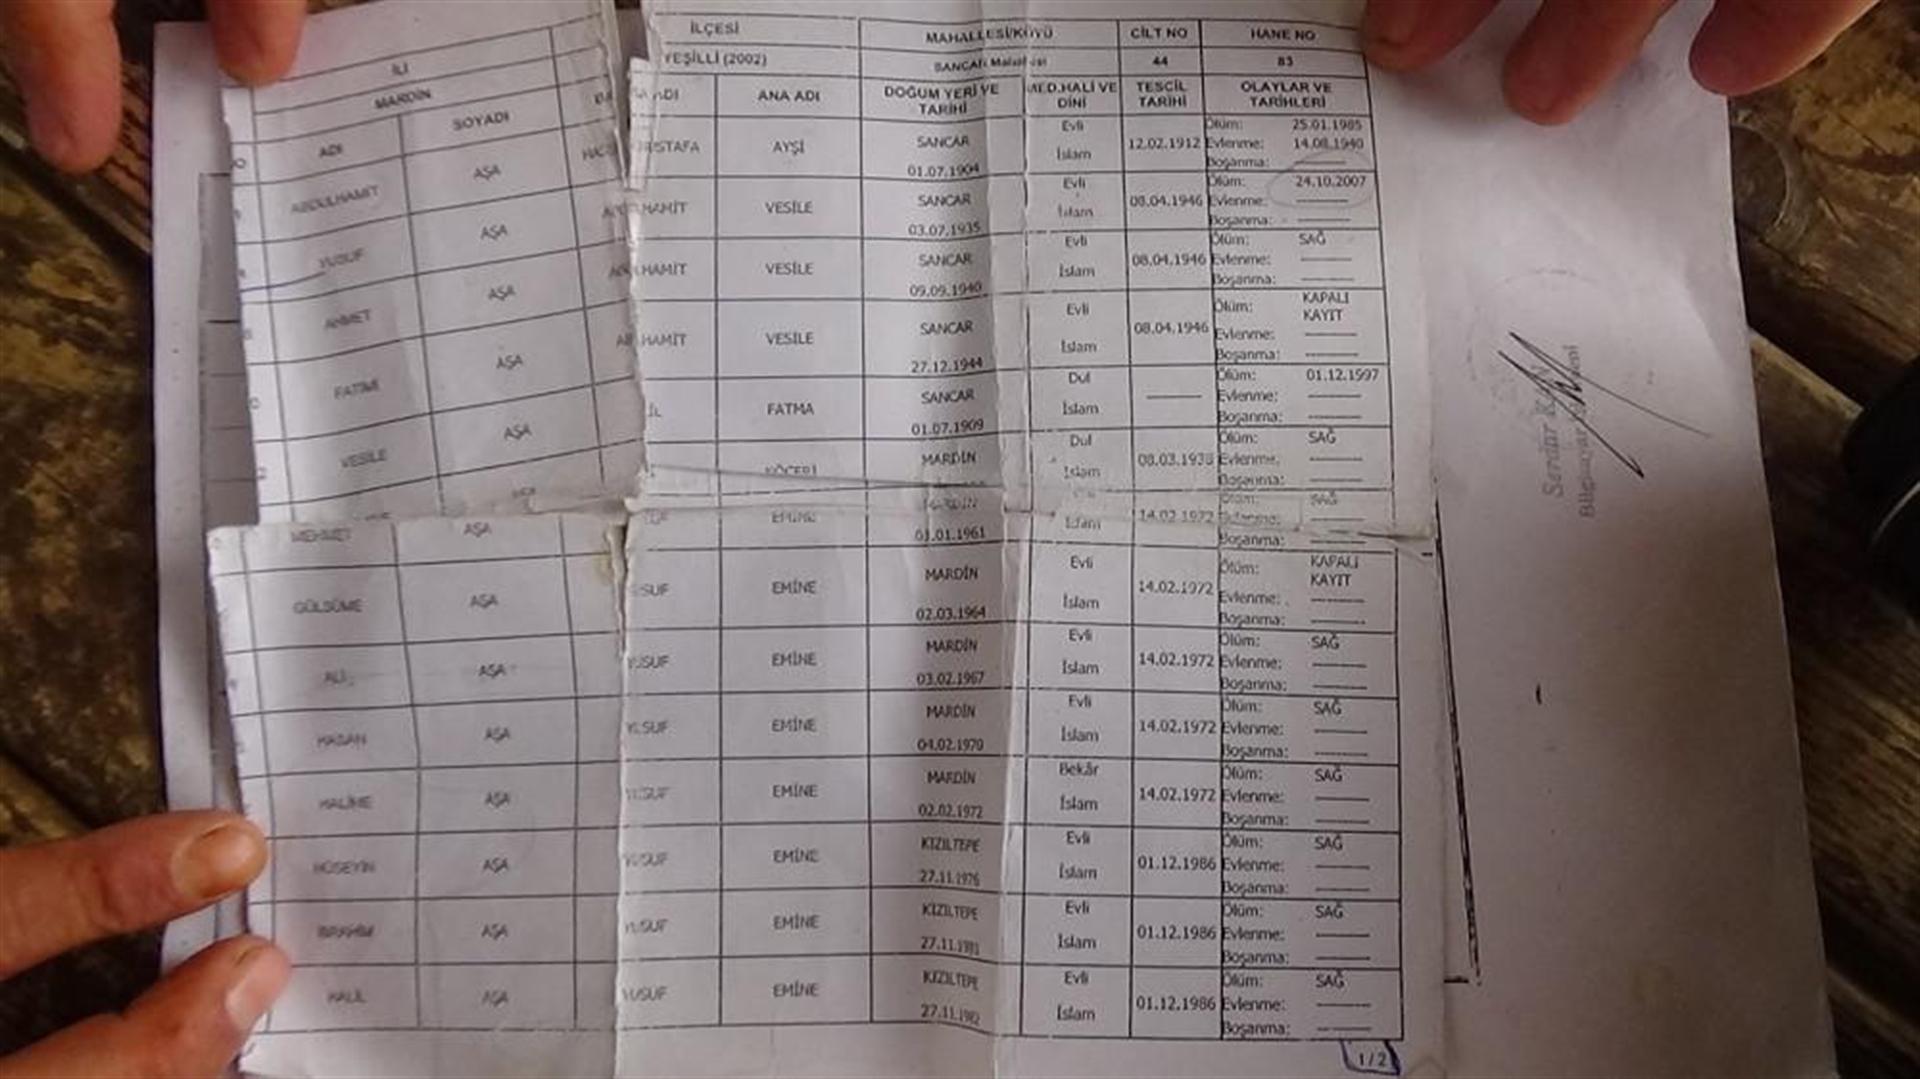 İLİ İLÇESİ MAHALLESİ/KÖYÜ CİLT NO HANE NO
MARDİN YEŞİLLİ (2002) SANCAR 44 83
ADI SOYADI ADI ANA ADI DOĞUM YERİ VE TARİHİ MED.HALİ VE DİNİ TESCİL TARİHİ OLAYLAR VE TARİHLERİ
ABDULHAMİT AŞA MUSTAFA AYŞİ SANCAR 01.07.1904 Evli İslam 12.02.1912 Ölüm: 25.01.1985
Evlenme: 14.08.1940
Boşanma: ----------
YUSUF AŞA HAMİT VESİLE SANCAR 03.07.1935 Evli İslam 08.04.1946 Ölüm: 24.10.2007
Evlenme: ----------
Boşanma: ----------
AHMET AŞA HAMİT VESİLE SANCAR 09.09.1940 Evli İslam 08.04.1946 Ölüm: SAĞ
Evlenme: ----------
Boşanma: ----------
FATIMI AŞA HAMİT VESİLE SANCAR 27.12.1944 Evli İslam 08.04.1946 Ölüm: KAPALI KAYIT
Evlenme: ----------
Boşanma: ----------
VESİLE AŞA İL FATMA SANCAR 01.07.1909 Dul İslam ---------- Ölüm: 01.12.1997
Evlenme: ----------
Boşanma: ----------
MARDİN Dul İslam 08.03.1938 Ölüm: SAĞ
Evlenme: ----------
Boşanma: ----------
MEHMET AŞA EMİNE MARDİN 01.01.1961 İslam 14.02.1972 Ölüm: SAĞ
Evlenme: ----------
Boşanma: ----------
GÜLSÜME AŞA YUSUF EMİNE MARDİN 02.03.1964 Evli İslam 14.02.1972 Ölüm: KAPALI KAYIT
Evlenme: ----------
Boşanma: ----------
ALİ AŞA YUSUF EMİNE MARDİN 03.02.1967 Evli İslam 14.02.1972 Ölüm: SAĞ
Evlenme: ----------
Boşanma: ----------
HASAN AŞA YUSUF EMİNE MARDİN 04.02.1970 Evli İslam 14.02.1972 Ölüm: SAĞ
Evlenme: ----------
Boşanma: ----------
HALİME AŞA YUSUF EMİNE MARDİN 02.02.1972 Bekâr İslam 14.02.1972 Ölüm: SAĞ
Evlenme: ----------
Boşanma: ----------
HÜSEYİN AŞA YUSUF EMİNE KIZILTEPE 27.11.1976 Evli İslam 01.12.1986 Ölüm: SAĞ
Evlenme: ----------
Boşanma: ----------
İBRAHİM AŞA YUSUF EMİNE KIZILTEPE 27.11.1981 Evli İslam 01.12.1986 Ölüm: SAĞ
Evlenme: ----------
Boşanma: ----------
HALİL AŞA YUSUF EMİNE KIZILTEPE 27.11.1982 Evli İslam 01.12.1986 Ölüm: SAĞ
Evlenme: ----------
Boşanma: ----------
1 / 2
Serdar
Bilgisayar